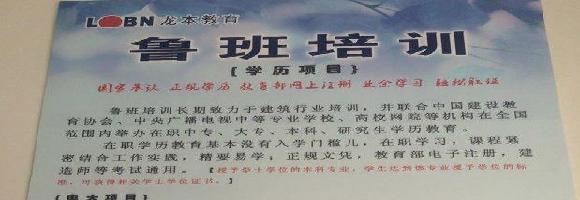 LOBN 龙本教育
鲁班培训
【学历项目】
国家承认 正规学历 教育部网上注册 业余学习 轻松取证
鲁班培训长期致力于建筑行业培训，并联合中国建设教
育协会、中央广播电视中等专业学校、高校网院等机构在全国
范围内举办在职中专、大专、本科、研究生学历教育。
在职学历教育基本没有入学门槛儿，在职学习，课程紧
密结合工作实践，精要易学；正规文凭，教育部电子注册，建
造师等考试通用。【授予学士学位的本科专业，学生达到该专业授予学位的标
准，可获得相关学士学位证书。】